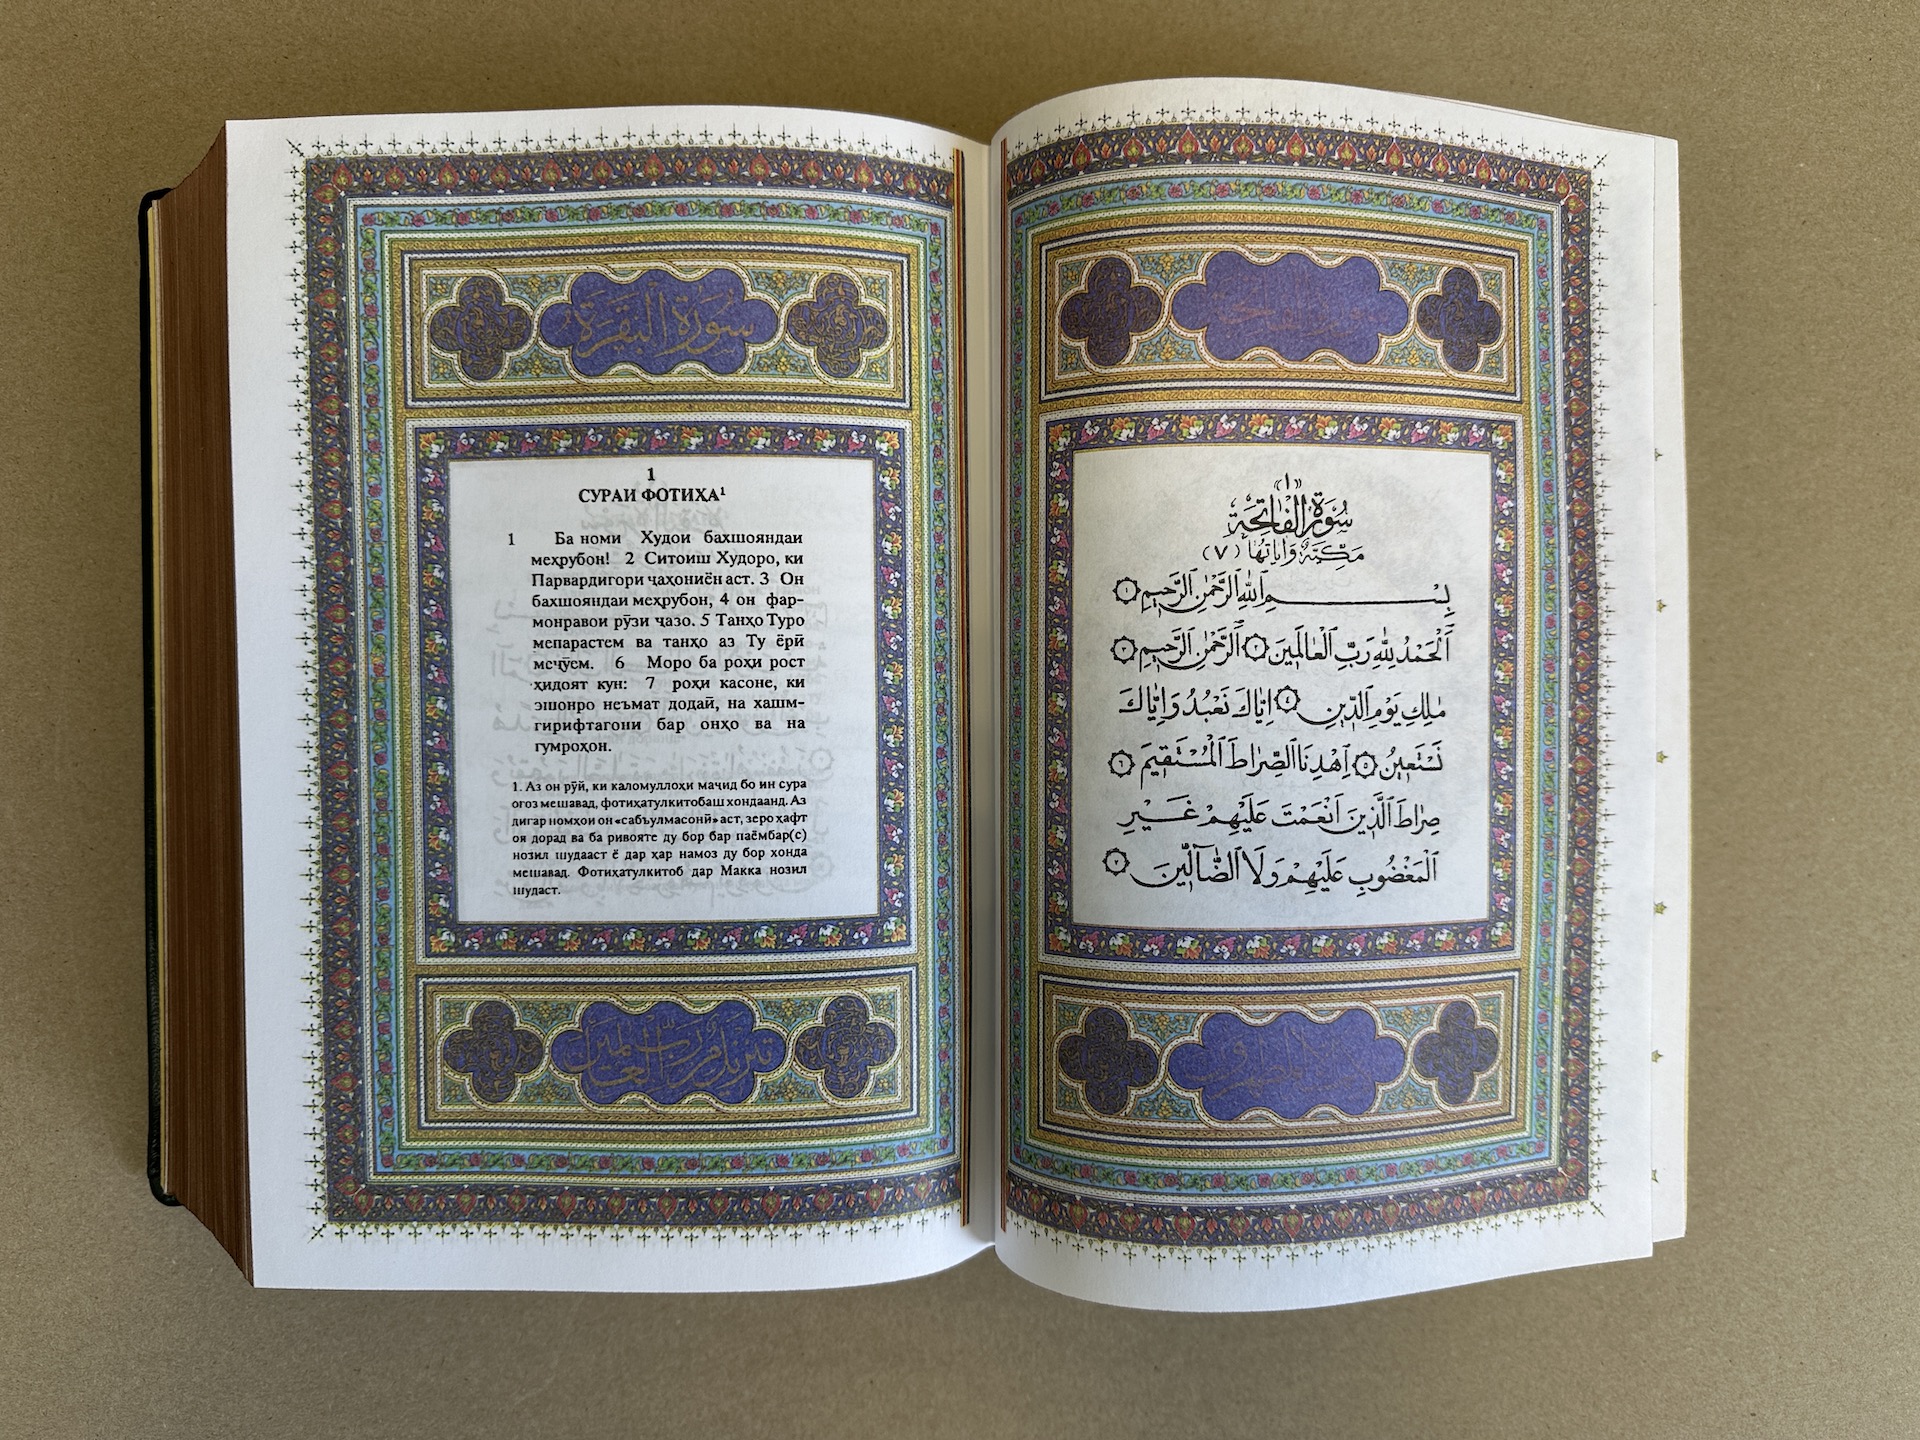 سورة البقرة
1
СУРАИ ФОТИҲА¹
1 Ба номи Худои бахшояндаи
меҳрубон! 2 Ситоиш Худоро, ки
Парвардигори ҷаҳониён аст. 3 Он
бахшояндаи меҳрубон, 4 он фар-
монравои рӯзи ҷазо. 5 Танҳо Туро
мепарастем ва танҳо аз Ту ёрӣ
меҷӯем. 6 Моро ба роҳи рост
ҳидоят кун: 7 роҳи касоне, ки
эшонро неъмат додаӣ, на хашм-
гирифтагони бар онҳо ва на
гумроҳон.
1. Аз он рӯй, ки каломуллоҳи маҷид бо ин сура
оғоз мешавад, фотиҳатулкитобаш хондаанд. Аз
дигар номҳои он «сабъулмасонӣ» аст, зеро ҳафт
оя дорад ва ба ривояте ду бор бар паёмбар(с)
нозил шудааст ё дар ҳар намоз ду бор хонда
мешавад. Фотиҳатулкитоб дар Макка нозил
шудаст.
تنزيل من رب العالمين
«١»
سُورَةُ الْفَاتِحَةِ
مَكِّيَّةٌ وَآيَاتُهَا (٧)
بِسْمِ اللهِ الرَّحْمٰنِ الرَّحِيمِ ١
اَلْحَمْدُ لِلّٰهِ رَبِّ الْعَالَمِينَ ٢ اَلرَّحْمٰنِ الرَّحِيمِ ٣
مٰلِكِ يَوْمِ الدِّينِ ٤ اِيَّاكَ نَعْبُدُ وَاِيَّاكَ
نَسْتَعِينُ ٥ اِهْدِنَا الصِّرَاطَ الْمُسْتَقِيمَ ٦
صِرَاطَ الَّذِينَ اَنْعَمْتَ عَلَيْهِمْ غَيْرِ
الْمَغْضُوبِ عَلَيْهِمْ وَلَا الضَّآلِّينَ ٧